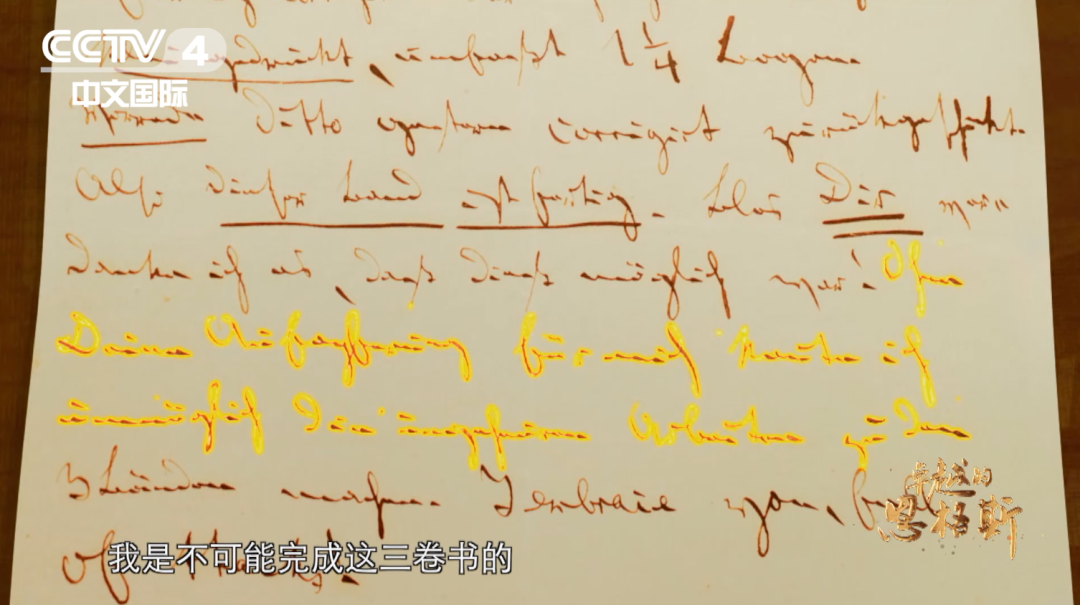 CCTV 4
中文国际
kleingedruckt, umfaßt 1 1/4 Bogen.
Vorrede ditto gestern corrigirt zurückgeschickt.
Also dieser Band ist fertig. Blos Dir ver
danke ich es, daß dieß möglich war! Ohne
Deine Aufopferung für mich konnte ich
unmöglich die ungeheuren Arbeiten zu den
3 Bänden machen. I embrace you, full
of thanks!
卓越的
恩格斯
我是不可能完成这三卷书的